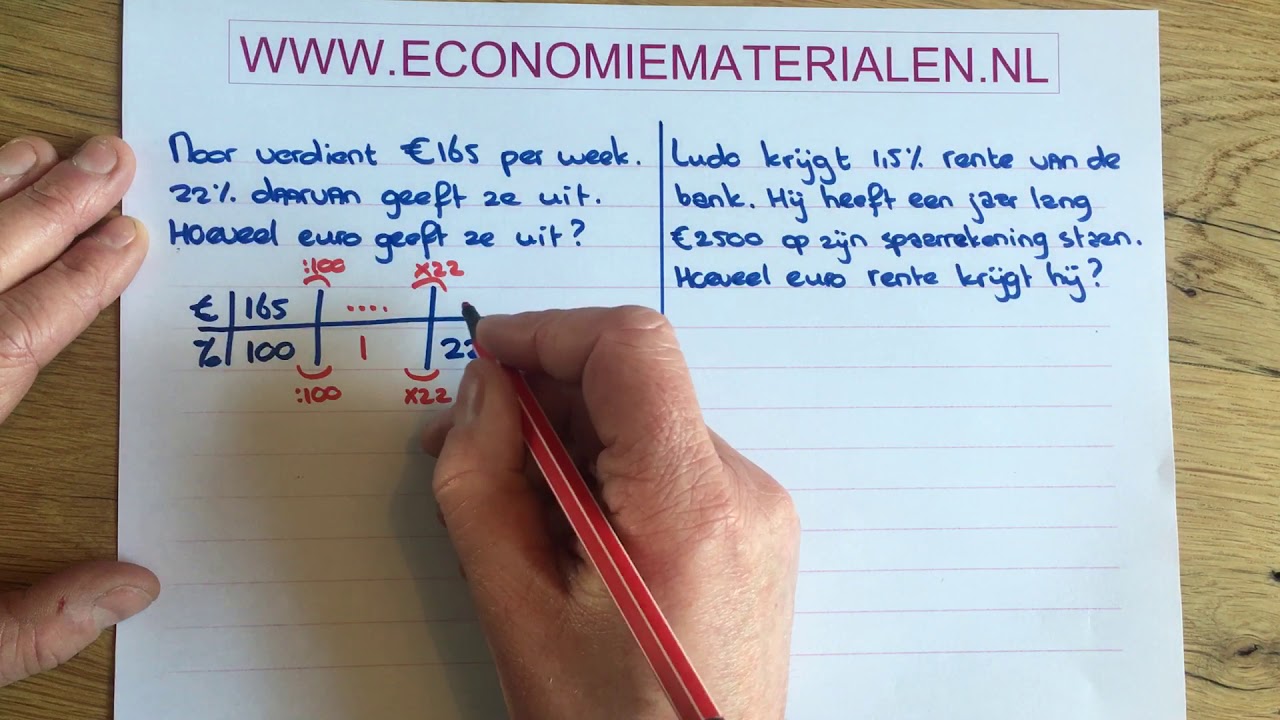 WWW.ECONOMIEMATERIALEN.NL
Noor verdient €165 per week.
22% daarvan geeft ze uit.
Hoeveel euro geeft ze uit?
:100 x22
€ 165 ....
% 100 1 22
:100 x22
Ludo krijgt 1,5% rente van de
bank. Hij heeft een jaar lang
€2500 op zijn spaarrekening staan.
Hoeveel euro rente krijgt hij?